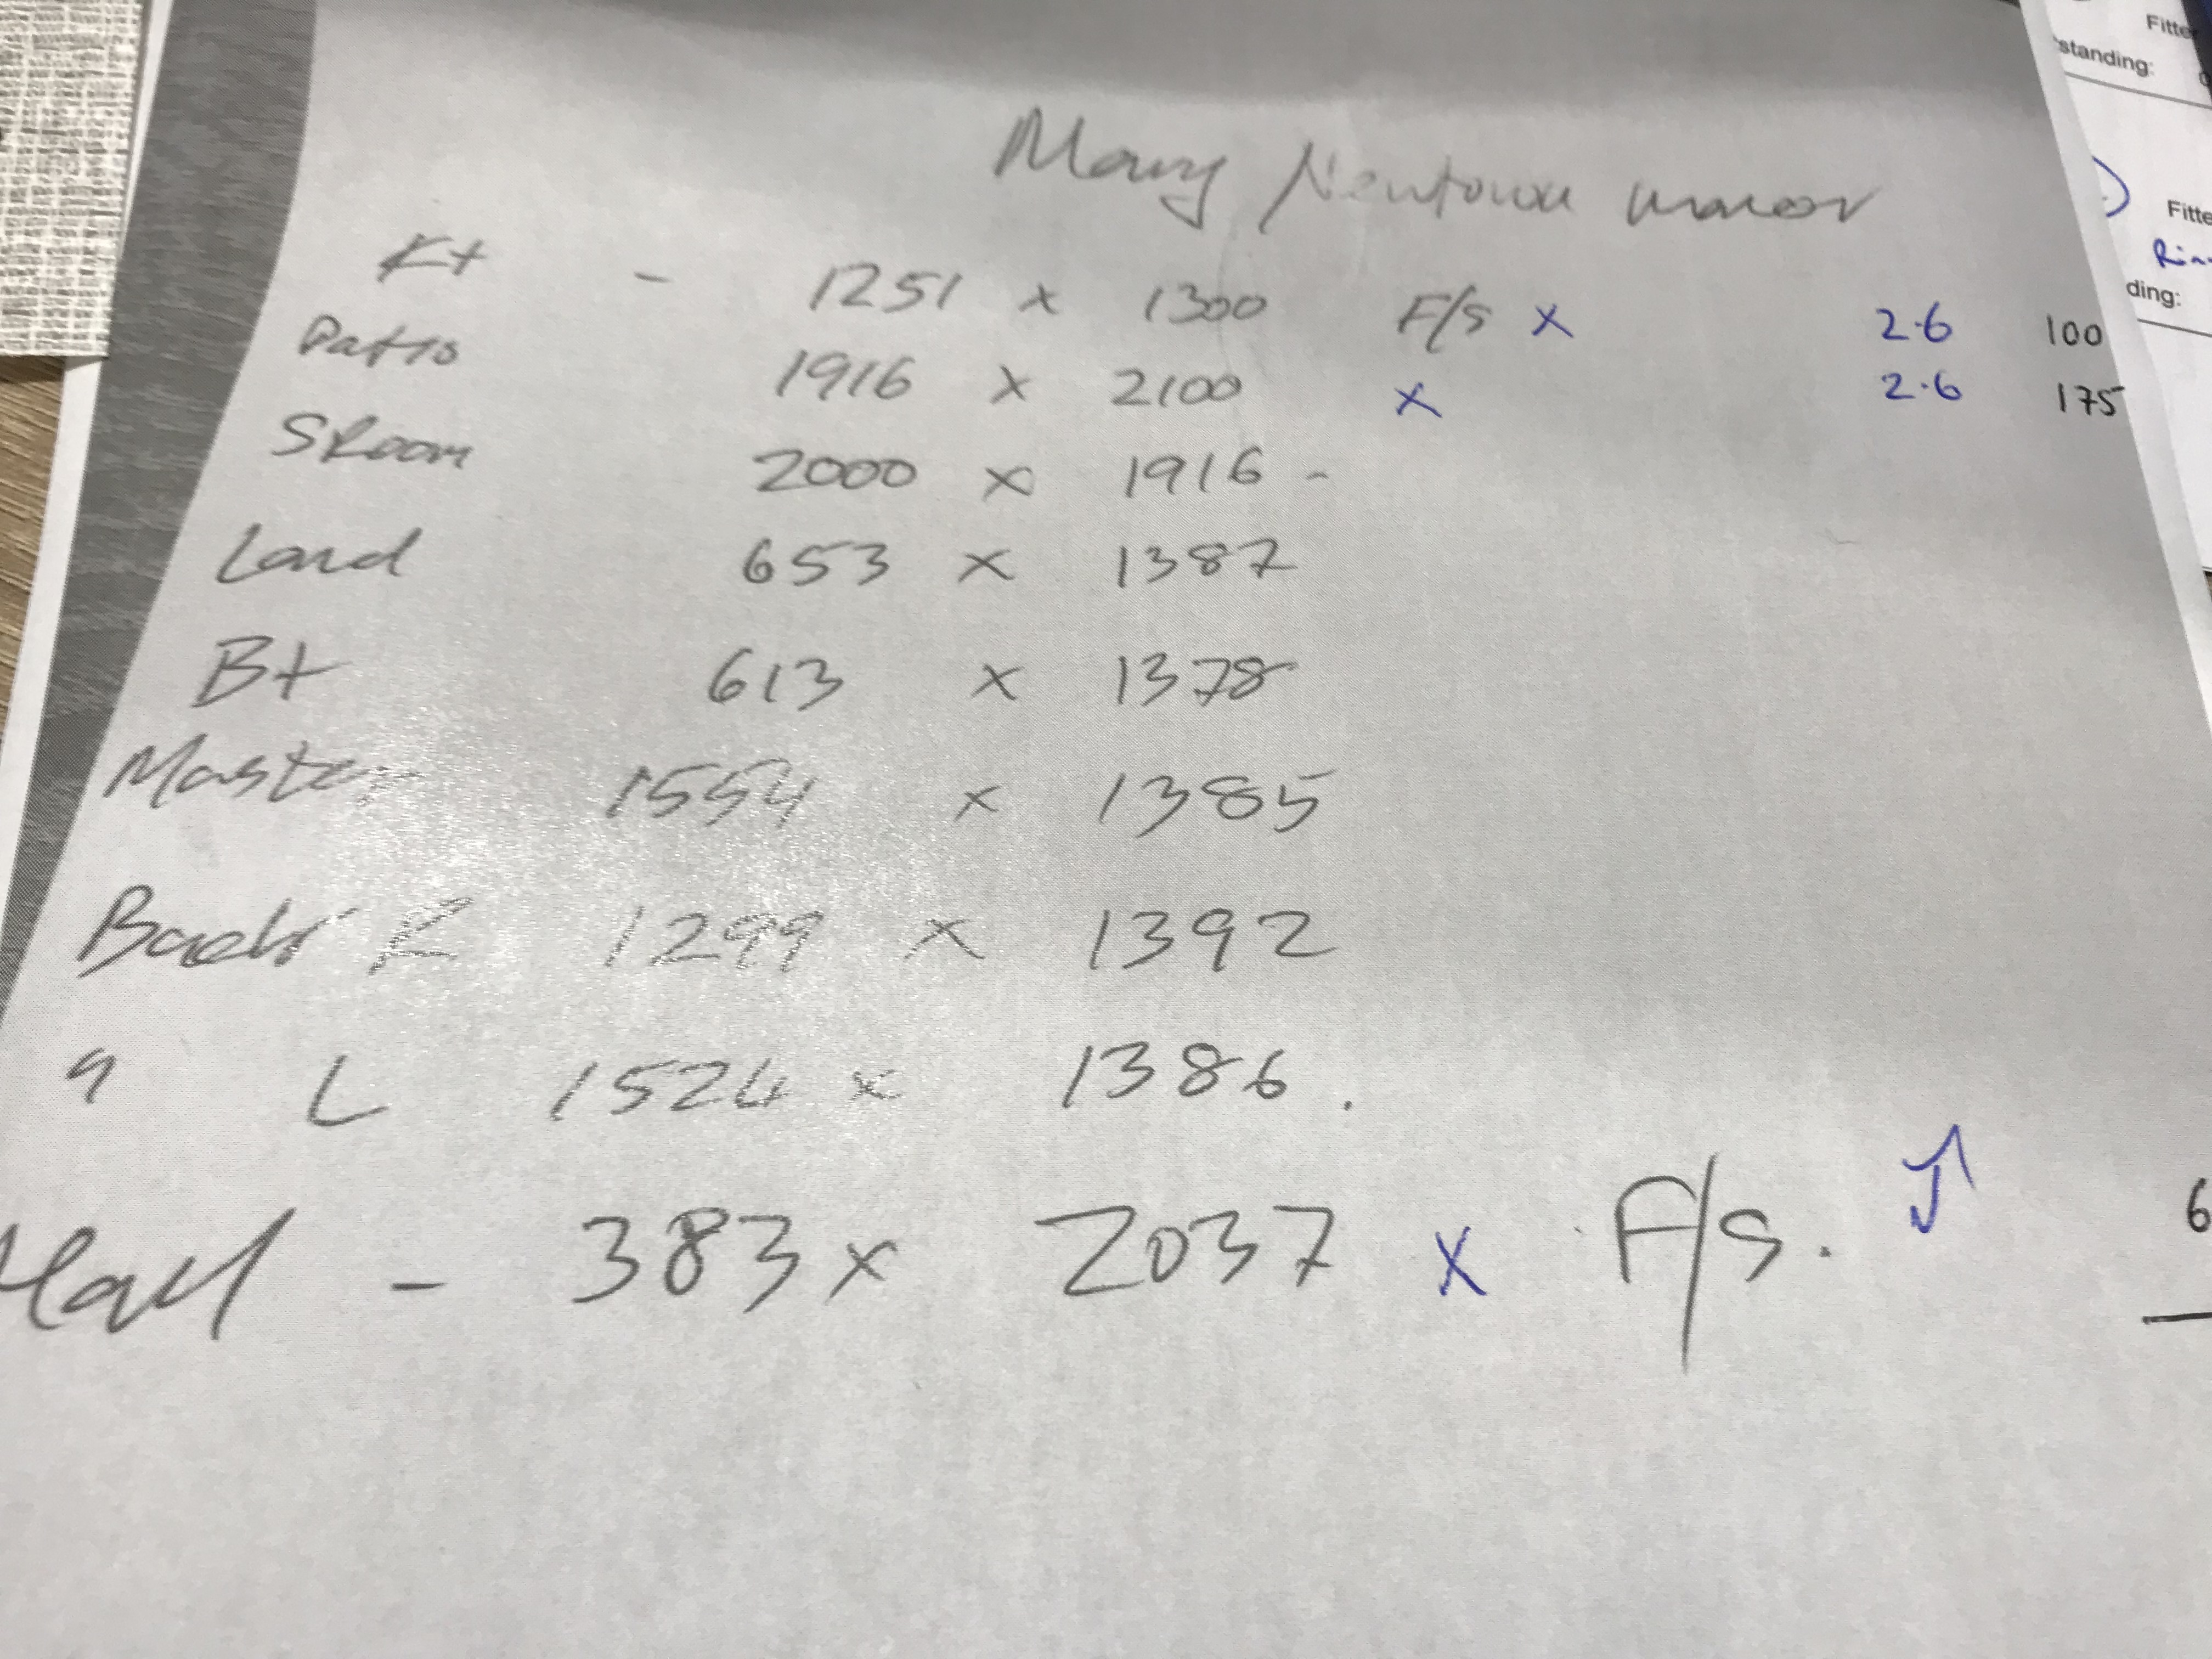 Fitte
standing:
Mary Newtown manor
Fitte
Rin
ding:
Kt - 1251 x 1300 F/S x 2.6 100
Patio 1916 x 2100 x 2.6 175
SRoom 2000 x 1916 -
Land 653 x 1387
Bt 613 x 1378
Master 1554 x 1385
Back R 1299 x 1392
" L 1524 x 1386.
Hall - 383 x 2037 x F/S. 6